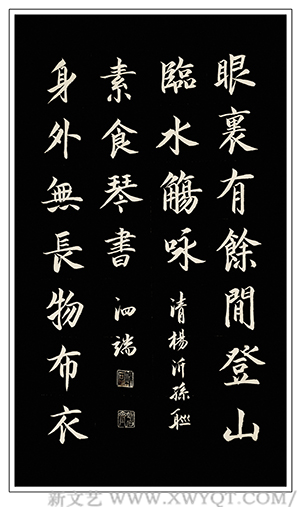 眼裏有餘閒登山
臨水觴咏
清楊沂孫聯
身外無長物布衣
素食琴書
泗端
新文艺 WWW.XWYQT.COM/